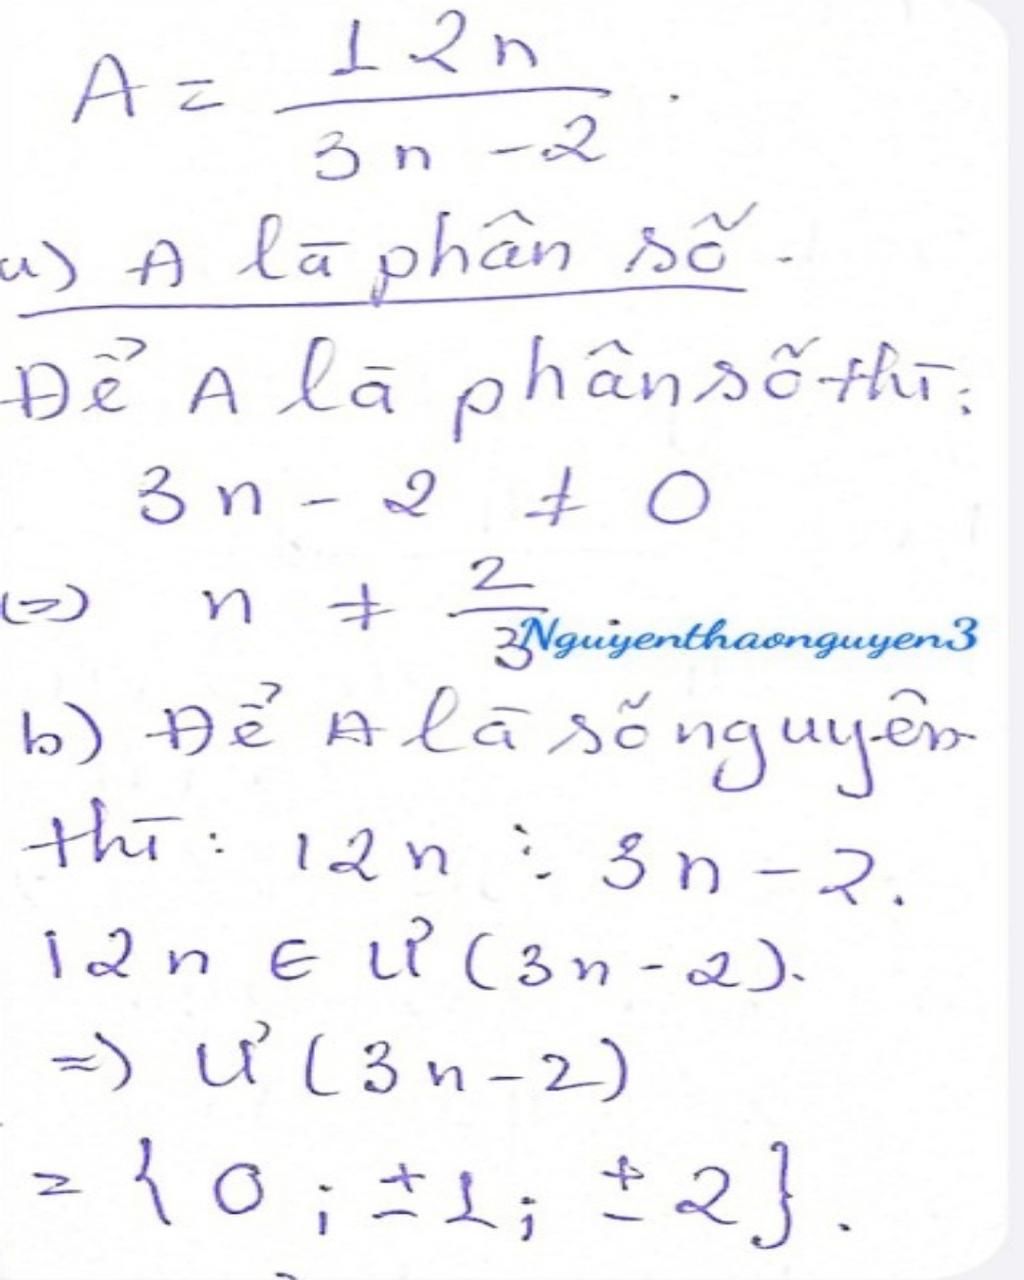 A = 12n / 3n - 2 .
a) A là phân số .
Để A là phân số thì :
3n - 2 ≠ 0
(=) n ≠ 2/3
Nguyenthaonguyen3
b) Để A là số nguyên
thì : 12n ⋮ 3n - 2 .
12n ∈ Ư (3n - 2).
=) Ư (3n - 2)
= { 0 ; ±1 ; ±2 } .